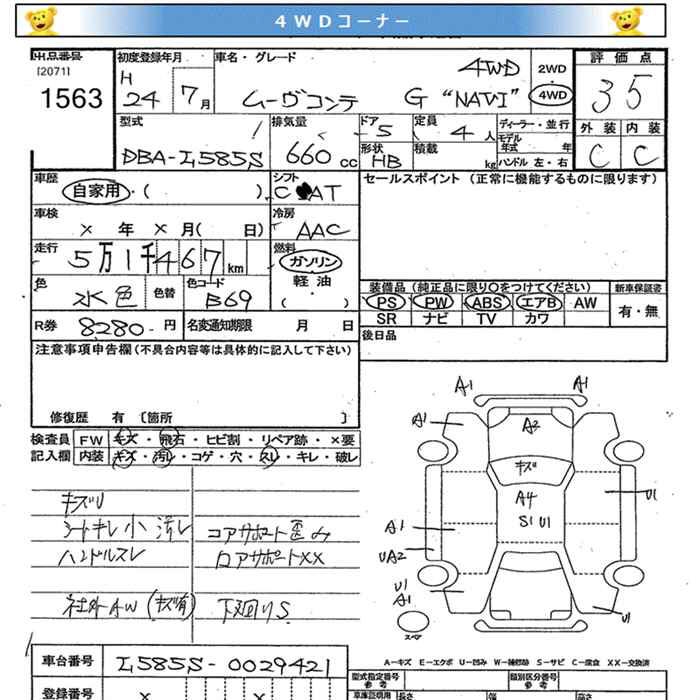 4WDコーナー
出品番号
[2071]
1563
初度登録年月
H
24年7月
車名・グレード
ムーヴコンテ G "NAVI" 4WD
2WD
4WD
評価点
35
外装 内装
C C
型式
DBA-L585S
排気量
660cc
ドア
5
定員
4人
形状
HB
積載
kg
ディーラー・並行
モデル
年式 年
ハンドル 左・右
車歴
自家用・( )
シフト
C AT
セールスポイント (正常に機能するものに限ります)
車検
× 年 × 月( 日)
冷房
AAC
走行
5万1千467km
燃料
ガソリン
軽油
( )
色
水色
色替
色コード
B69
装備品(純正品に限り○をつけてください)
PS PW ABS エアB AW
SR ナビ TV カワ
新車保証書
有・無
R券 8280-円
名変通知期限 月 日
後日品
注意事項申告欄(不具合内容等は具体的に記入して下さい)
修復歴 有 〔箇所 〕
検査員 FW キズ・飛石・ヒビ割・リペア跡・×要
記入欄 内装 キズ・汚れ・コゲ・穴・スレ・キレ・破レ
キズU
シートキレ小 汚レ
ハンドルスレ
社外AW(キズ有)
コアサポート歪み
ロアサポートXX
下廻りS
A1 A1
A1 A2
キズ
A4
S1 U1
U1
A1
UA2
U1
A1
U1
スペア
A-キズ E-エクボ U-凹み W-補修跡 S-サビ C-腐食 XX-交換済
車台番号 L585S-0029421
登録番号 × ×
型式指定番号
参考
類別区分番号
参考
車庫証明用 長さ 幅 高さ